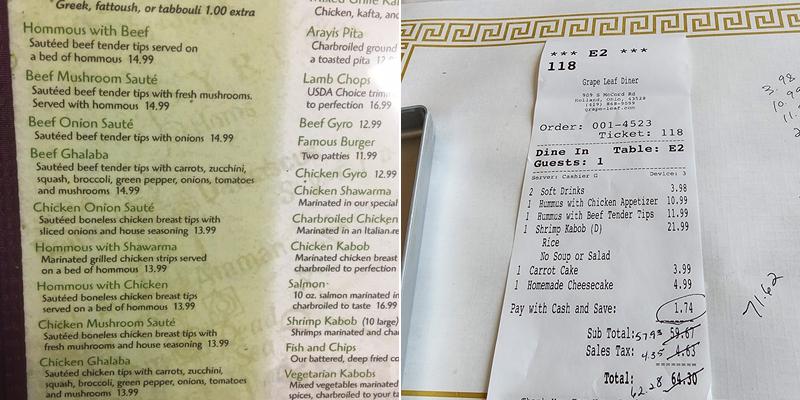 Greek, fattoush, or tabbouli 1.00 extra
Hommous with Beef
Sautéed beef tender tips served on
a bed of hommous 14.99
Beef Mushroom Sauté
Sautéed beef tender tips with fresh mushrooms.
Served with hommous 14.99
Beef Onion Sauté
Sautéed beef tender tips with onions 14.99
Beef Ghalaba
Sautéed beef tender tips with carrots, zucchini,
squash, broccoli, green pepper, onions, tomatoes
and mushrooms 14.99
Chicken Onion Sauté
Sautéed boneless chicken breast tips with
sliced onions and house seasoning 13.99
Hommous with Shawarma
Marinated grilled chicken strips served
on a bed of hommous 13.99
Hommous with Chicken
Sautéed boneless chicken breast tips
served on a bed of hommous 13.99
Chicken Mushroom Sauté
Sautéed boneless chicken breast tips with
fresh mushrooms and house seasoning 13.99
Chicken Ghalaba
Sautéed chicken tips with carrots, zucchini,
squash, broccoli, green pepper, onions, tomatoes
and mushrooms 13.99
Chicken, kafta, and
Arayis Pita
Charbroiled ground
a toasted pita
Lamb Chops
USDA Choice trim
to perfection 16.99
Beef Gyro 12.99
Famous Burger
Two patties 11.99
Chicken Gyro 12.99
Chicken Shawarma
Marinated in our special
Charbroiled Chicken
Marinated in an Italian
Chicken Kabob
Marinated chicken breast
charbroiled to perfection
Salmon
10 oz. salmon marinated in
charbroiled to taste 16.99
Shrimp Kabob (10 large)
Shrimps marinated and
Fish and Chips
Our battered, deep fried
Vegetarian Kabobs
Mixed vegetables marinated
spices, charbroiled to your
*** E2 ***
118
Grape Leaf Diner
909 S McCord Rd
Holland, Ohio, 43528
(419) 868-9099
grape-leaf.com
Order: 001-4523
Ticket: 118
Dine In Table: E2
Guests: 1
Server: Cashier G Device: 3
2 Soft Drinks 3.98
1 Hummus with Chicken Appetizer 10.99
1 Hummus with Beef Tender Tips 11.99
1 Shrimp Kabob (D) 21.99
Rice
No Soup or Salad
1 Carrot Cake 3.99
1 Homemade Cheesecake 4.99
Pay with Cash and Save: 1.74
Sub Total: 57.93 59.67
Sales Tax: 4.35 4.63
Total: 62.28 64.30
3.98
71.62